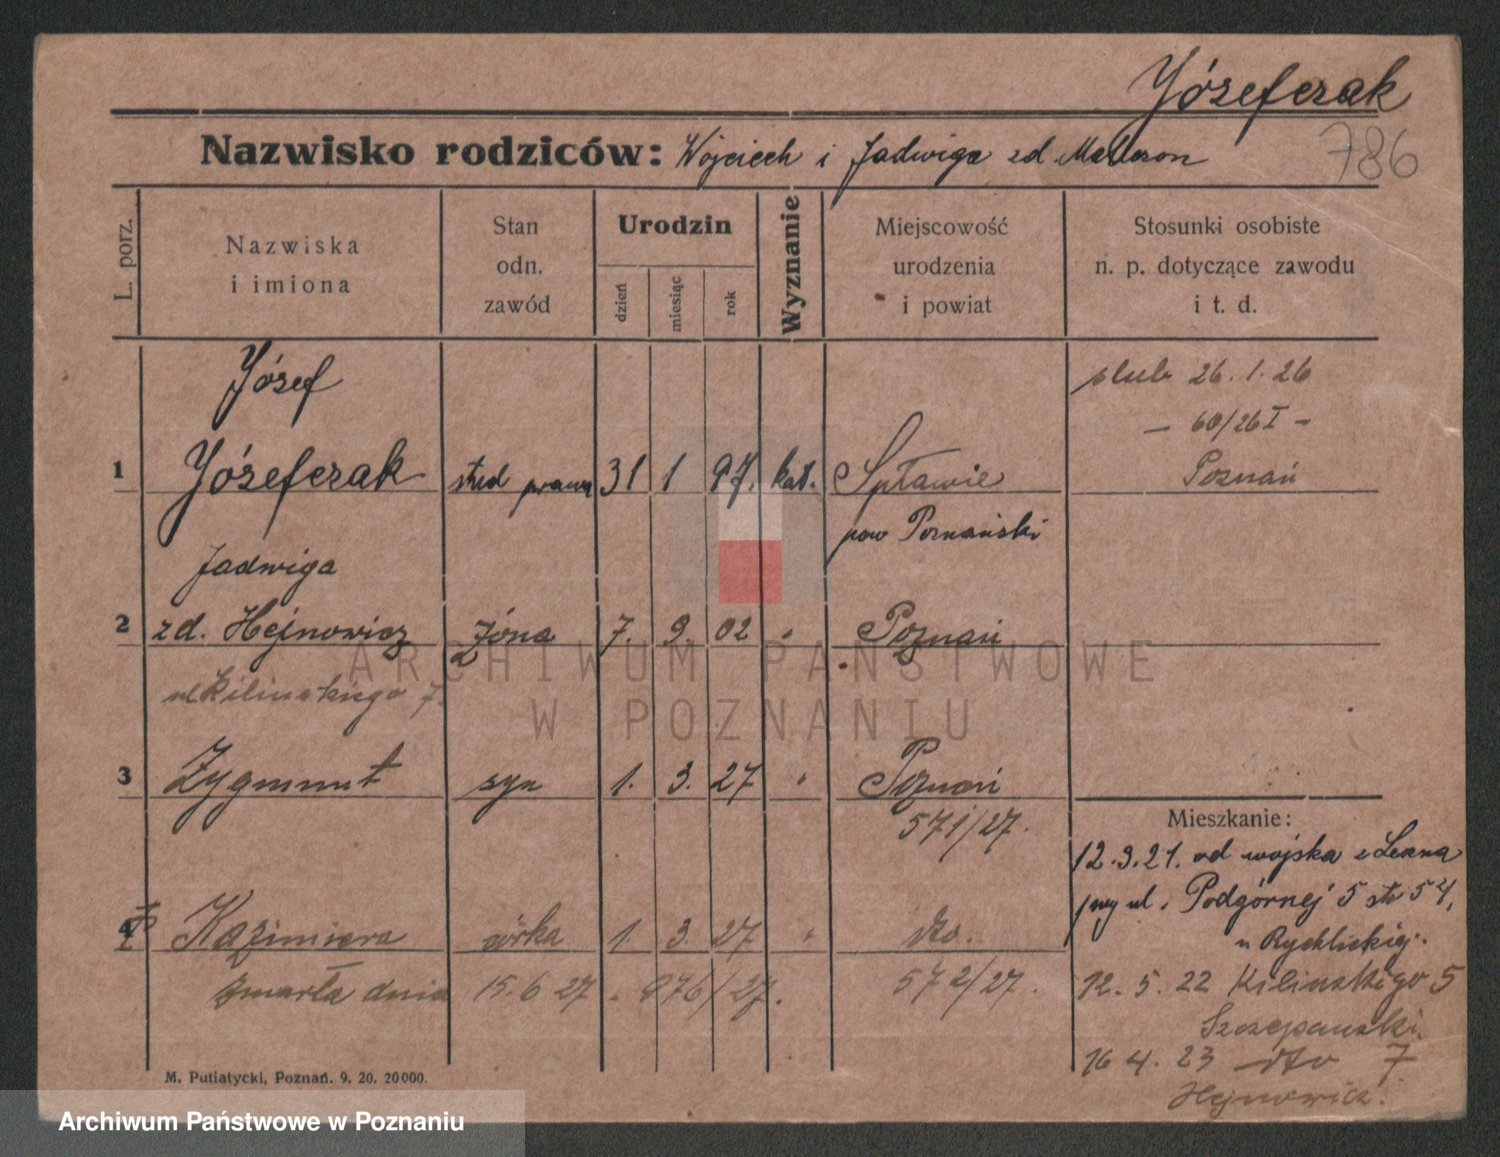 Józefczak
786
Nazwisko rodziców: Wojciech i Jadwiga zd
L. porz.
Nazwiska
i imiona
Stan
odn.
zawód
Urodzin
dzień
miesiąc
rok
Wyznanie
Miejscowość
urodzenia
i powiat
Stosunki osobiste
n. p. dotyczące zawodu
i t. d.
Józef
1 Józefczak stud prawa 31 1 97. kat. Spławie
pow Poznański
ślub 26.1.26
— 60/26 I —
Poznań
Jadwiga
2 zd. Hejnowicz żona 7. 9. 02 " Poznań
ul Kilińskiego 7.
3 Zygmunt syn 1. 3. 27 " Poznań
571/27.
4 Kazimiera córka 1. 3. 27 " dto.
zmarła dnia 15.6 27. 976/27.
572/27.
Mieszkanie:
12.3.21. od wojska z
ul. Podgórnej 5 54,
u Rychlickiej.
12.5.22 Kilińskiego 5
Szczepański.
16 4. 23 dto 7
Hejnowicz.
M. Putiatycki, Poznań. 9. 20. 20000.
ARCHIWUM PAŃSTWOWE
W POZNANIU
Archiwum Państwowe w Poznaniu